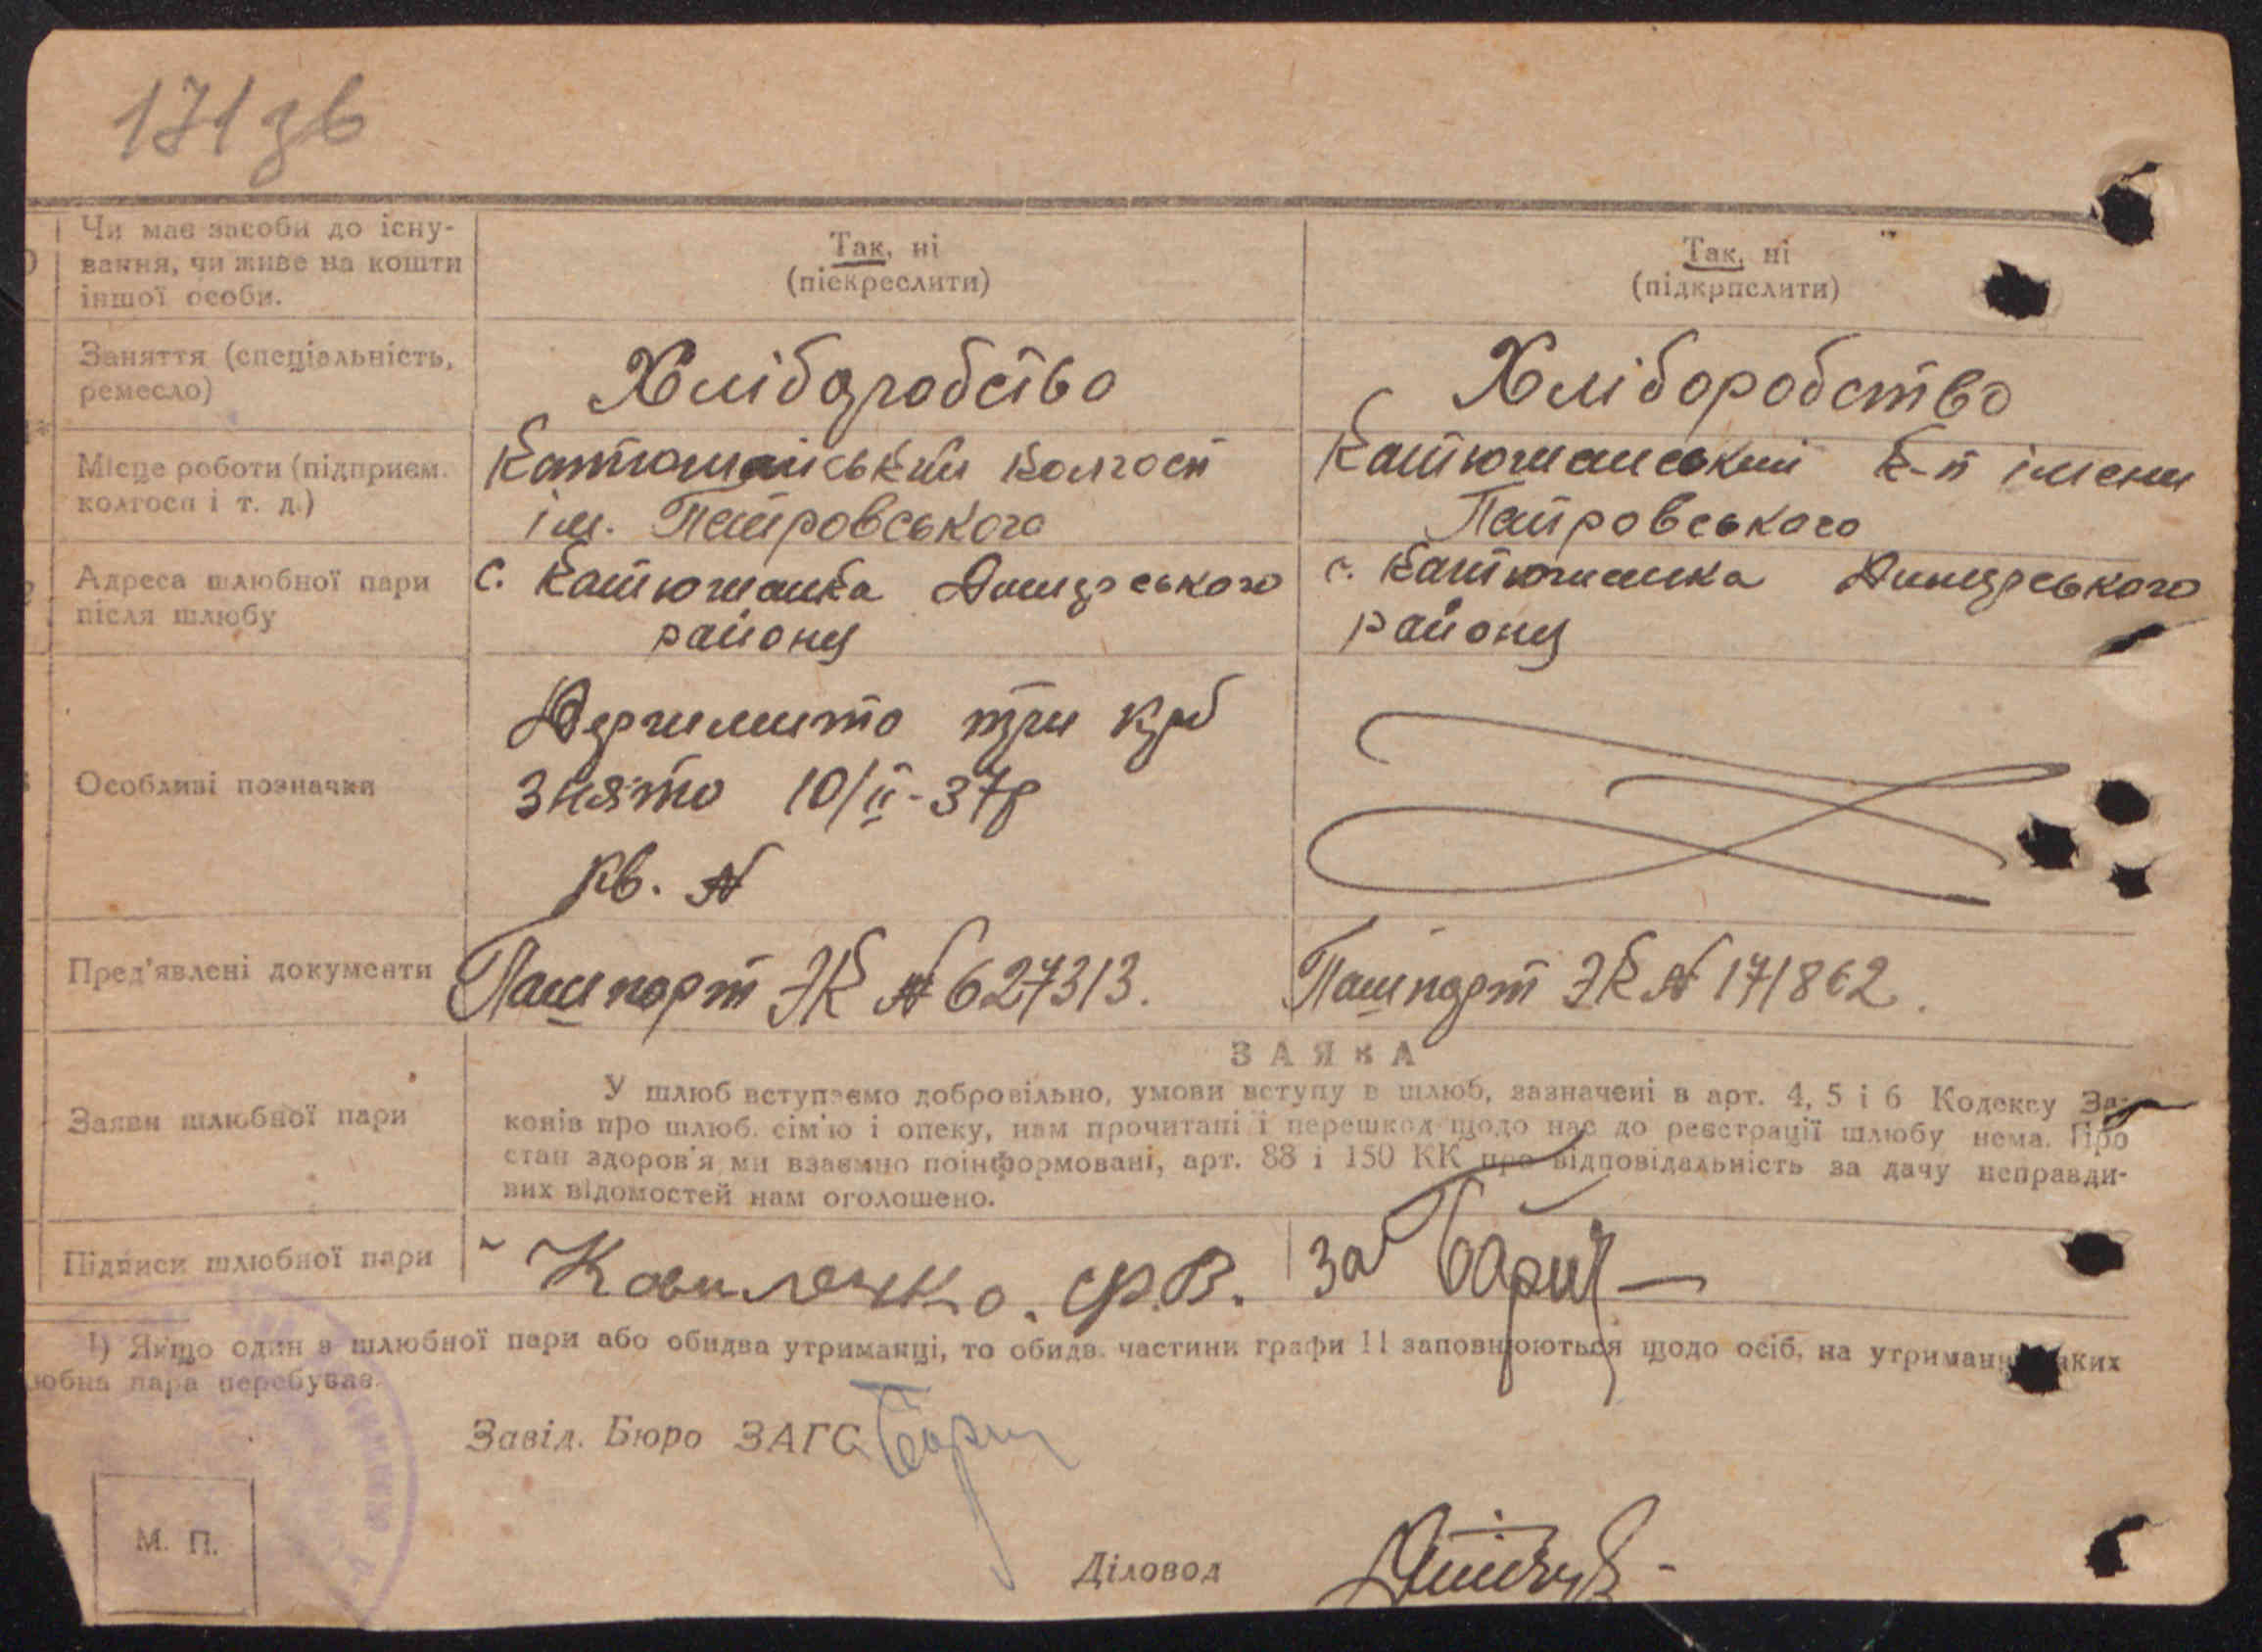 171 зв
Чи має засоби до існу-
вання, чи живе на кошти
іншої особи.
Так, ні
(піекреслити)
Так, ні
(підкрпслити)
Заняття (спеціальність,
ремесло)
Хліборобство
Хліборобство
Місце роботи (підприєм.
колгосп і т. д.)
Катюжанський колгосп
ім. Петровського
Катюжанський к-п імени
Петровського
Адреса шлюбної пари
після шлюбу
с. Катюжанка Димерського
району
с. Катюжанка Димерського
району
Особливі позначки
Держмито три крб
знято 10/ІІ-37р
кв. №
Пред'явлені документи
Пашпорт ЭК № 627313.
Пашпорт ЭК № 171862.
ЗАЯВА
Заяви шлюбної пари
У шлюб вступаємо добровільно, умови вступу в шлюб, зазначені в арт. 4, 5 і 6 Кодексу За-
конів про шлюб. сім'ю і опеку, нам прочитані і перешкод щодо нас до реєстрації шлюбу нема. Про
стан здоров'я ми взаємно поінформовані, арт. 88 і 150 КК про відповідальність за дачу неправди-
вих відомостей нам оголошено.
Підписи шлюбної пари
Ф.В.
за
1) Якщо один з шлюбної пари або обидва утриманці, то обидв. частини графи 11 заповнюються щодо осіб, на утриманні яких
юбна пара перебуває.
Завід. Бюро ЗАГС
М. П.
Діловод